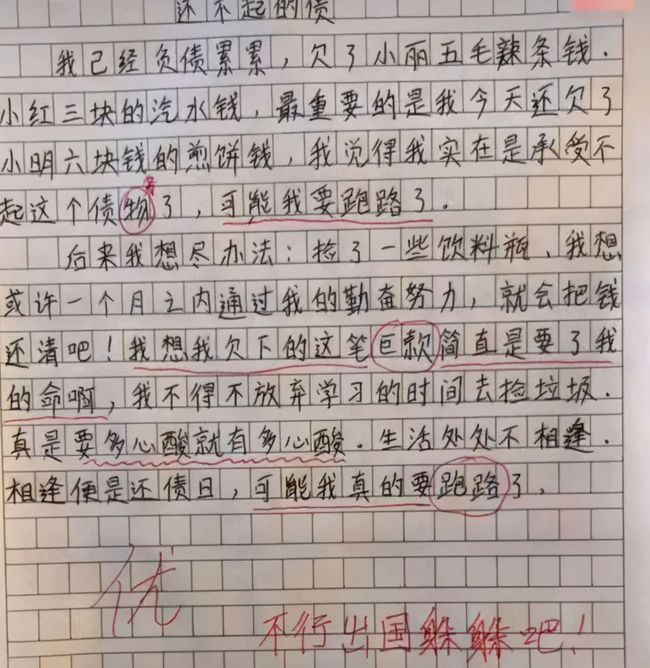 还不起的债
我已经负债累累，欠了小丽五毛辣条钱.
小红三块的汽水钱，最重要的是我今天还欠了
小明六块钱的煎饼钱，我觉得我实在是承受不
务
起这个债物了，可能我要跑路了.
后来我想尽办法：捡了一些饮料瓶、我想
或许一个月之内通过我的勤奋努力，就会把钱
还清吧！我想我欠下的这笔巨款简直是要了我
的命啊，我不得不放弃学习的时间去捡垃圾.
真是要多心酸就有多心酸.生活处处不相逢.
相逢便是还债日，可能我真的要跑路了.
优
不行出国躲躲吧！